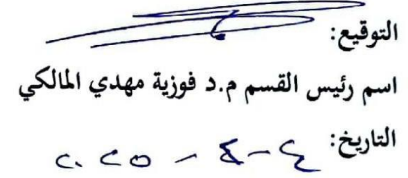 التوقيع:
اسم رئيس القسم م.د فوزية مهدي المالكي
التاريخ: ٤-٤-٢٠٢٥